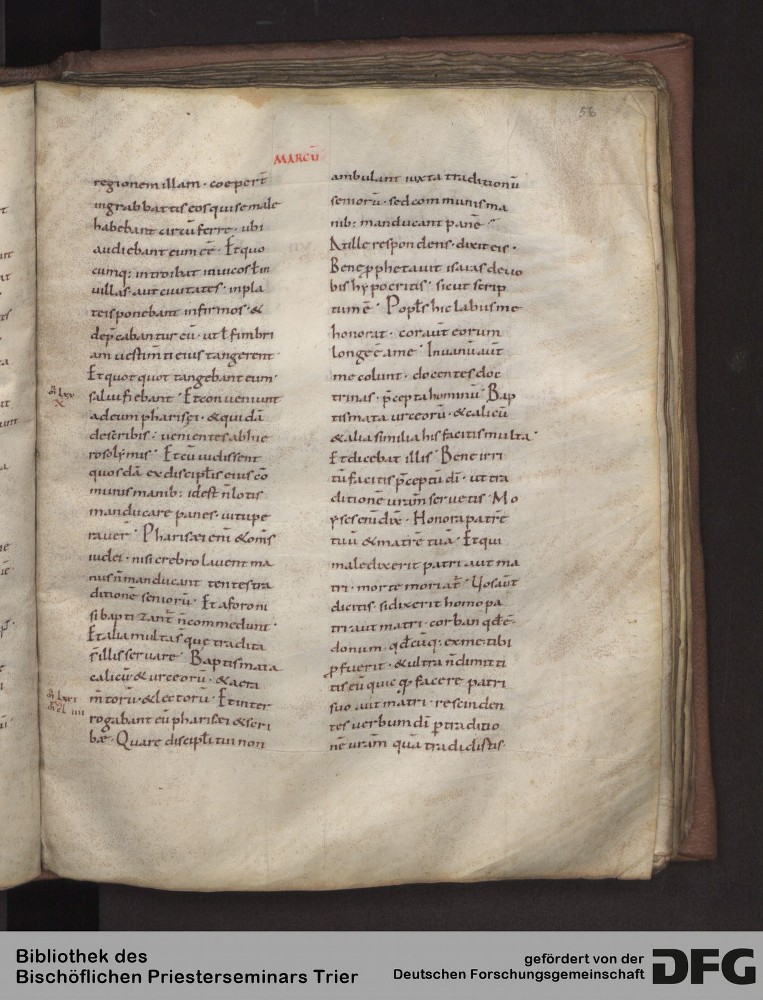 56
MARCŪ
regionem illam · coeper̄t
ingrabbattis eos quisemale
habebant circūferre · ubi
audiebant eum eē · Et quo
cumq; introibat inuicos ł in
uillas · aut ciuitates · inpla
teis ponebant infirmos · &
dep̄cabantur eū · ut ł fimbri
am uestim̄ti eius tangerent
Et quot quot tangebant eum ·
salui fiebant · Et conueniunt
adeum pharisęi · & quidā
describis : uenientes abhie
rosolẏmis · Et cū uidissent
quosdā ex discipłis eius cō
munis manib; id est n̄ lotis
manducare panes · uitupe
rauer̄ · Pharisęi eni & om̄s
iudei · nisi crebro lauent ma
nus n̄ manducant tentes tra
ditionē seniorū · Et aforo ni
si baptizant̄ n̄ commedunt ·
Et alia multa s̄ que tradita
s̄ illis seruare · Baptismata
calicū & urceorū · & aera
m̄torū · & lectorū · Et inter
rogabant eū pharisęi & scri
bæ · Quare discipłi tui non
ambulant iuxta traditionū
seniorū · sed communis ma
nib; manducant panē ·
At ille respondens · dixit eis ·
Bene ꝓphetauit isaias deuo
bis hẏpocritis · sicut scrip
tum ē · Popłs hic labiis me
honorat · cor aut̄ eorum
longe ē ame · Inuanū aut̄
me colunt · docentes doc
trinas · p̄cepta hominū · Bap
tismata urceorū · & calicū
& alia similia his facitis multa ·
Et dicebat illis · Bene irri
tū facitis p̄ceptū dī · ut tra
ditionē urām seruetis · Mo
ẏses eni dix̄ · Honora patrē
tuū & matrē tuā · Et qui
maledixerit patri aut ma
tri · morte moriat̄ · Uos aūt
dicitis · si dixerit homo pa
tri aut matri · corban qđ ē ·
donum · qđcūq; ex me tibi
ꝓfuerit · & ultra n̄ dimitti
tis eū quicqꝫ facere patri
suo aut matri · rescinden
tes uerbum dī p traditio
nē urām quā tradidistis ·
Bibliothek des
Bischöflichen Priesterseminars Trier
gefördert von der
Deutschen Forschungsgemeinschaft
DFG